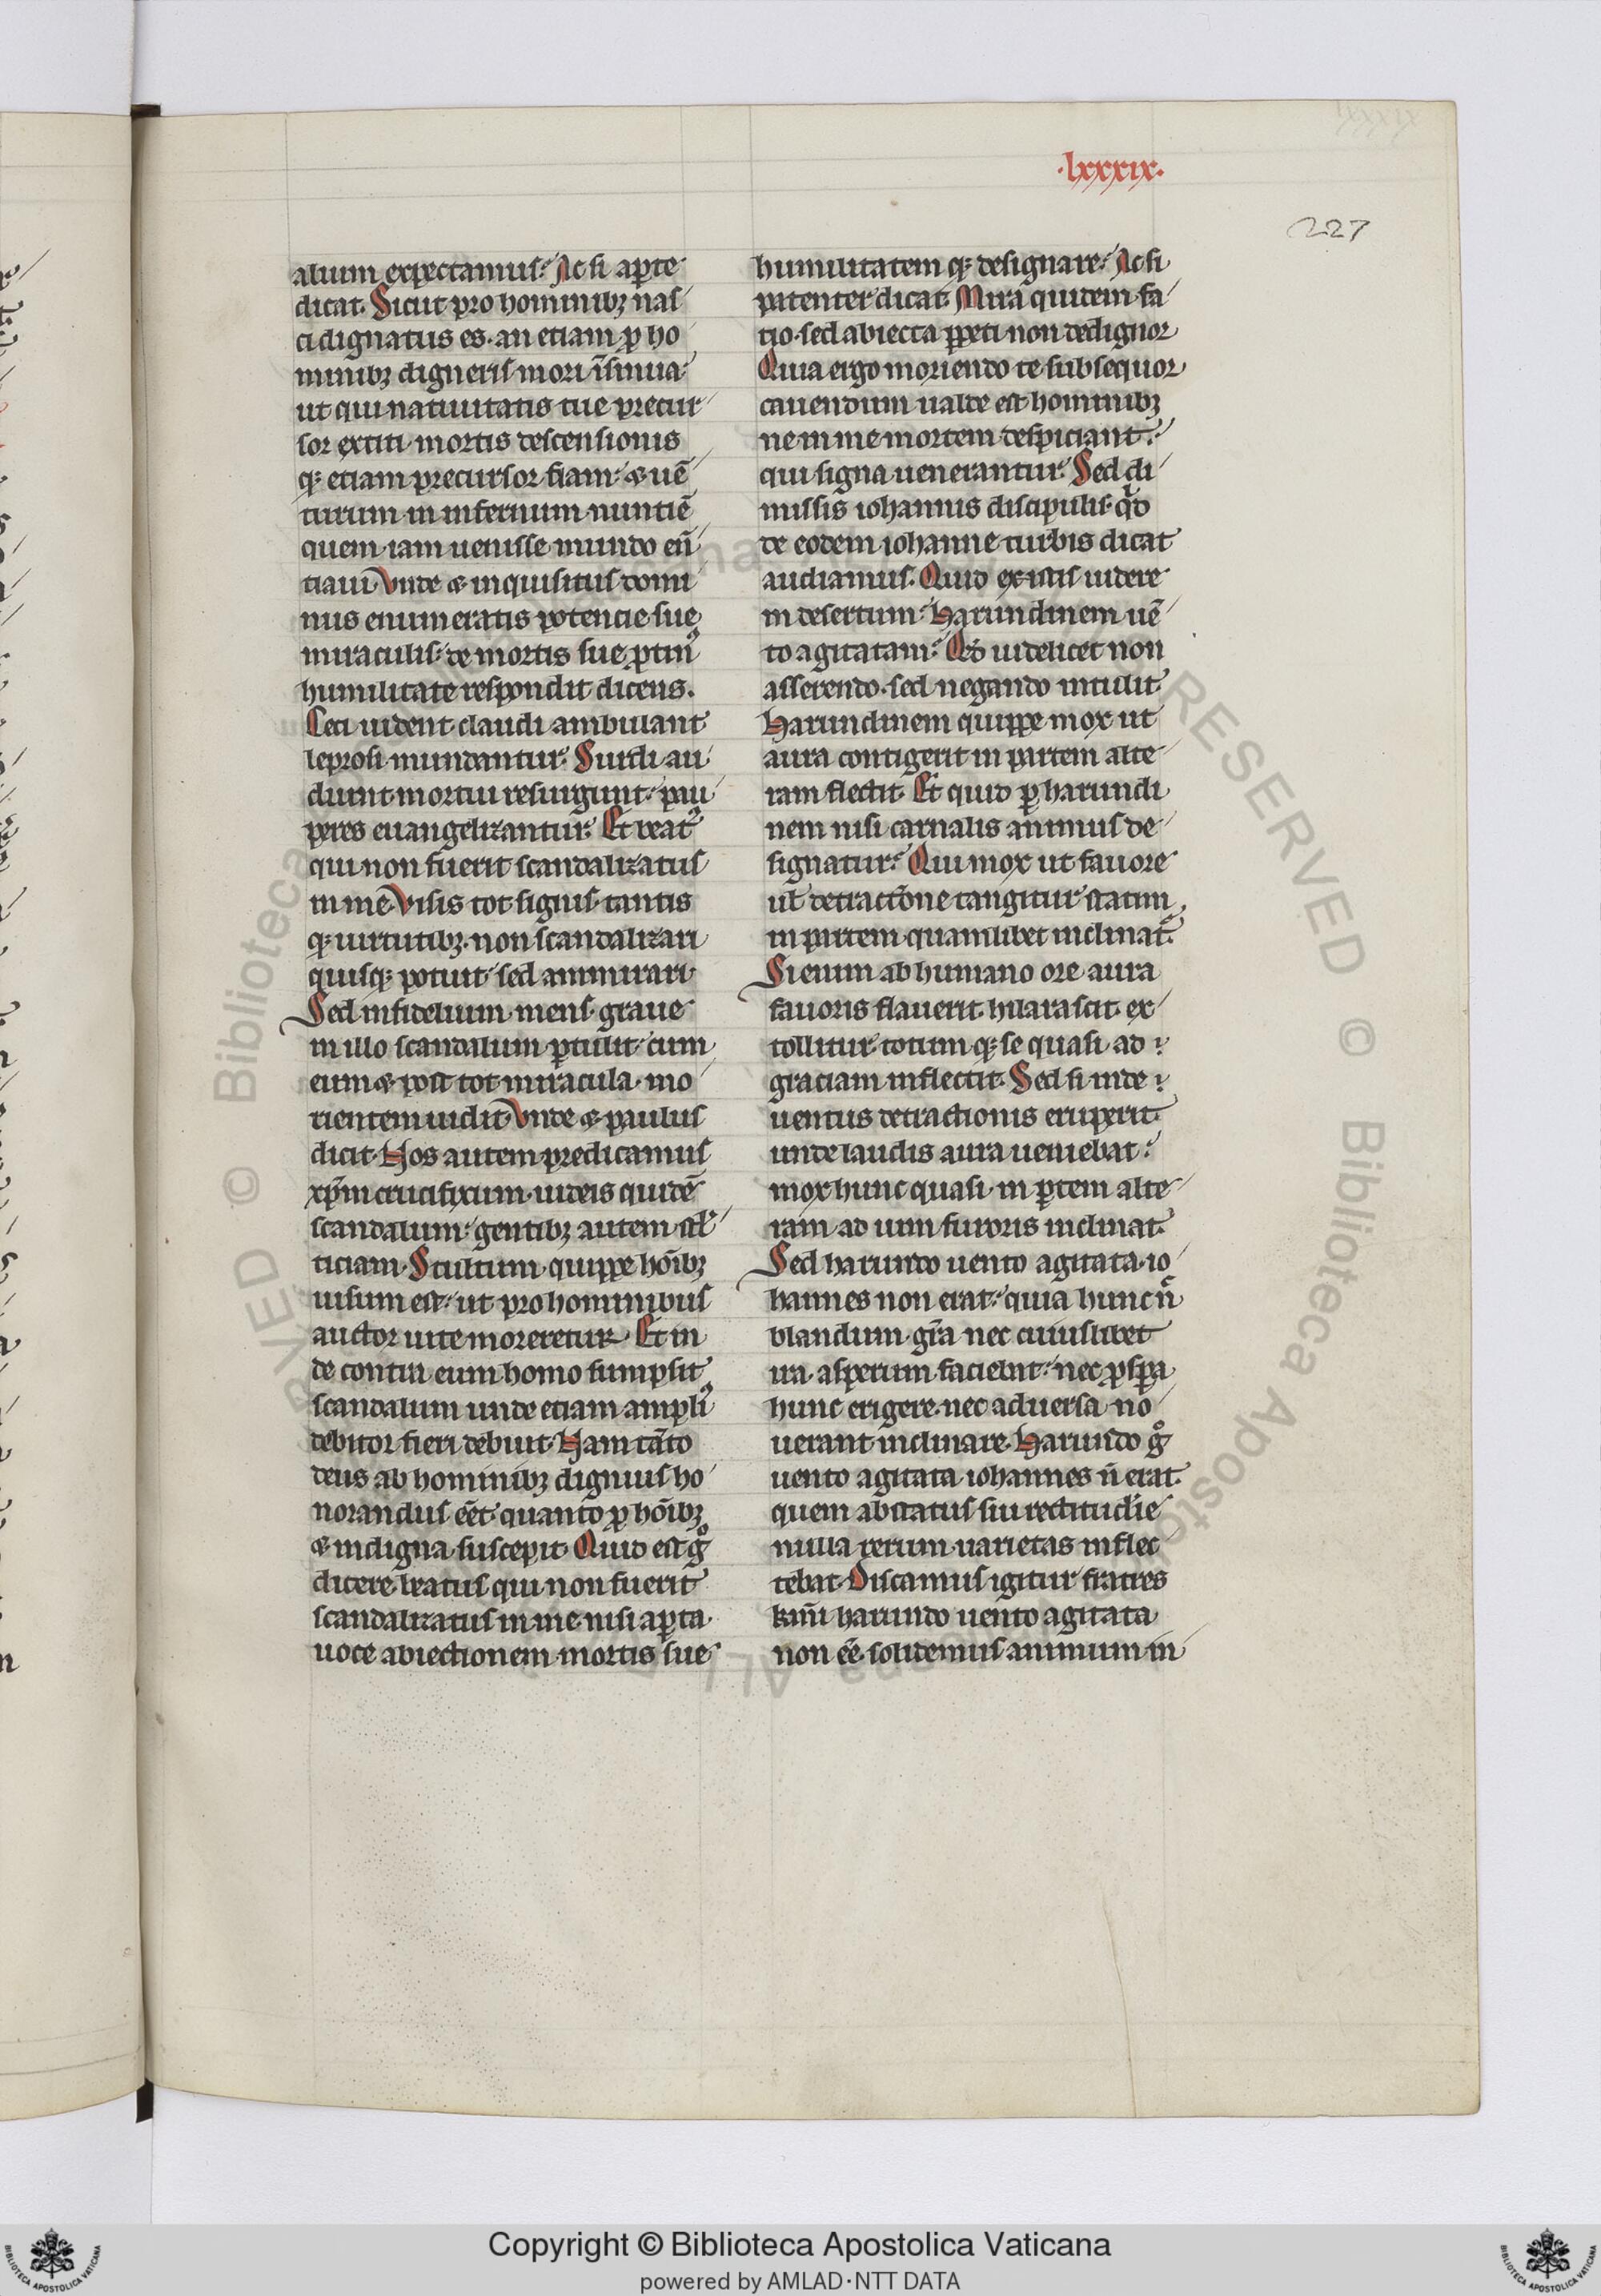 ·lxxxix·
227
alium expectamus? Ac si aꝑte
dicat. Sicut pro hominibꝫ nas
ci dignatus es. an etiam ꝓ ho
minibꝫ digneris mori īsinua.
ut qui natiuitatis tue precur
sor extiti mortis descensionis
qꝫ etiam precursor fiam. ⁊ uē
turum in infernum nuntiē
quem iam uenisse mundo eñ
tiaui. Vnde ⁊ inquisitus domi
nus enumeratis potencie sue
miraculis. de mortis sue ꝓtinꝰ
humilitate respondit dicens.
Ceci uident claudi ambulant
leprosi mundantur. Surdi au
diunt mortui resurgunt. pau
peres euangelizantur. Et beatꝰ
qui non fuerit scandalizatus
in me. Visis tot signis tantis
qꝫ uirtutibꝫ. non scandalizari
quisqꝫ potuit sed ammirari.
Sed infidelium mens graue
in illo scandalum ꝑtulit cum
eum ⁊ post tot miracula mo
rientem uidit. Vnde ⁊ paulus
dicit. Nos autem predicamus
xp̄m crucifixum. iudeis quidē
scandalum. gentibꝫ autem stl'
ticiam. Stultum quippe hōibꝫ
uisum est. ut pro hominibus
auctor uite moreretur. Et in
de contra eum homo sumpsit
scandalum unde etiam ampliꝰ
debitor fieri debuit. Nam tāto
deus ab hominibꝫ dignius ho
norandus eēt. quanto ꝓ hōibꝫ
⁊ indigna suscepit. Quid est gͦ
dicere beatus qui non fuerit
scandalizatus in me nisi aꝑta
uoce abiectionem mortis sue
humilitatem qꝫ designare. Ac si
patenter dicat. Mira quidem fa
cio. sed abiecta ꝑpeti non dedignor
Quia ergo moriendo te subsequor
cauendum ualde est hominibꝫ
ne in me mortem despiciant.
qui signa uenerantur. Sed di
missis iohannis discipulis. qͥd
de eodem iohanne turbis dicat
audiamus. Quid existis uidere
in desertum. Harundinem uē
to agitatam? Qͦd uidelicet non
asserendo. sed negando intulit.
Harundinem quippe mox ut
aura contigerit in partem alte
ram flectit. Et quid ꝑ harundi
nem nisi carnalis animus de
signatur? Qui mox ut fauore
ul' detractōne tangitur statim
in partem quamlibet inclinat̉.
Si enim ab humano ore aura
fauoris flauerit. hilarascit. ex
tollitur. totum qꝫ se quasi ad
graciam inflectit. Sed si inde
uentus detractionis eruperit
unde laudis aura ueniebat.
mox hunc quasi in ꝑtem alte
ram ad uim furoris inclinat.
Sed harundo uento agitata io
hannes non erat. quia hunc ñ
blandum grā nec cuiuslibet
ira asperum faciebat. nec ꝓspa
hunc erigere. nec aduersa no
uerant inclinare. Harundo gͦ
uento agitata iohannes ñ erat.
quem abstatus sui rectitudīe
nulla rerum uarietas inflec
tebat. Discamus igitur fratres
kmī harundo uento agitata
non eē. solidemus animum in
Copyright © Biblioteca Apostolica Vaticana
powered by AMLAD·NTT DATA